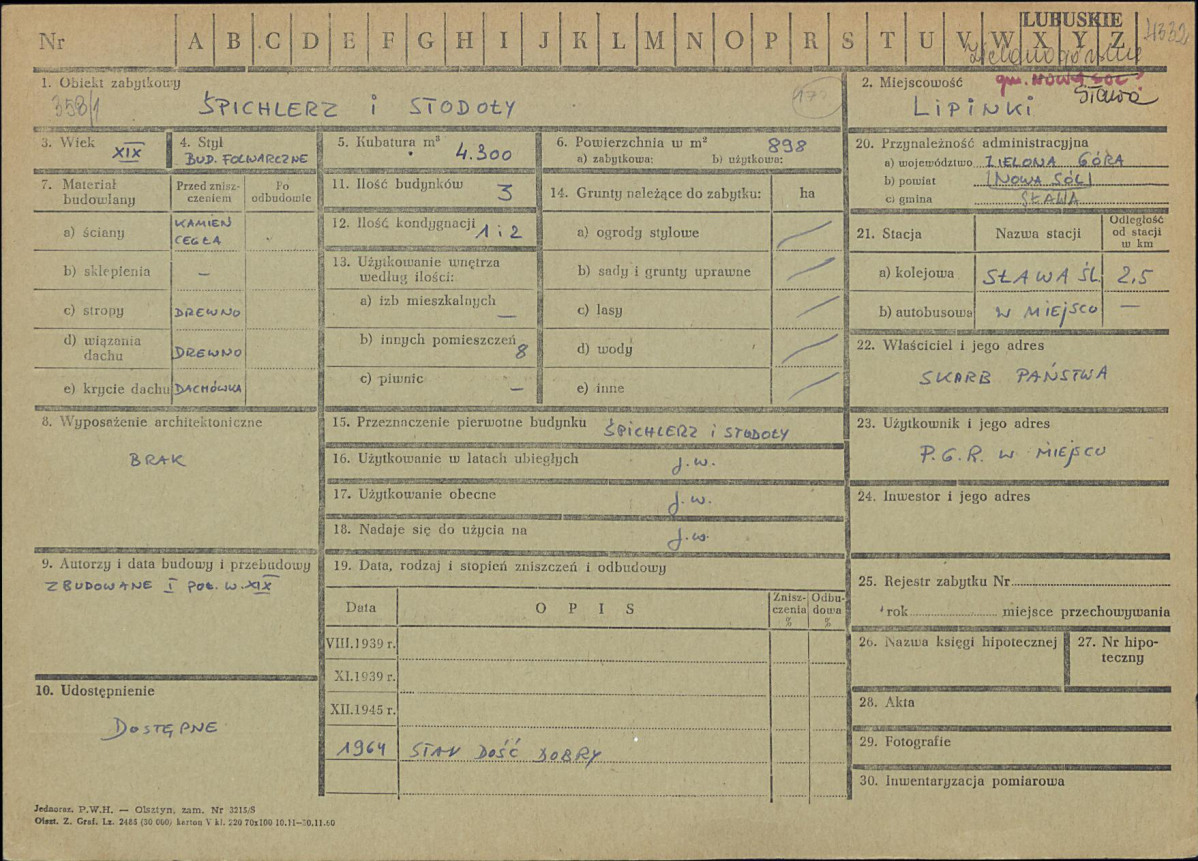 LUBUSKIE
Nr A B C D E F G H I J K L M N O P R S T U V W X Y Z 4332
Zielonogórskie
1. Obiekt zabytkowy
358/1 ŚPICHLERZ i STODOŁY
2. Miejscowość gm. NOWA SÓL
Sława
LIPINKI
3. Wiek XIX
4. Styl BUD. FOLWARCZNE
5. Kubatura m³ 4.300
6. Powierzchnia w m² 898
a) zabytkowa: b) użytkowa:
20. Przynależność administracyjna
a) województwo ZIELONA GÓRA
b) powiat NOWA SÓL
c) gmina SŁAWA
7. Materiał budowlany
Przed zniszczeniem
Po odbudowie
a) ściany KAMIEŃ CEGŁA
b) sklepienia —
c) stropy DREWNO
d) wiązania dachu DREWNO
e) krycie dachu DACHÓWKA
11. Ilość budynków 3
12. Ilość kondygnacji 1 i 2
13. Użytkowanie wnętrza według ilości:
a) izb mieszkalnych —
b) innych pomieszczeń 8
c) piwnic —
14. Grunty należące do zabytku: ha
a) ogrody stylowe
b) sady i grunty uprawne
c) lasy
d) wody
e) inne
21. Stacja Nazwa stacji Odległość od stacji w km
a) kolejowa SŁAWA ŚL. 2,5
b) autobusowa W MIEJSCU —
22. Właściciel i jego adres
SKARB PAŃSTWA
8. Wyposażenie architektoniczne
BRAK
15. Przeznaczenie pierwotne budynku ŚPICHLERZ i STODOŁY
16. Użytkowanie w latach ubiegłych j.w.
17. Użytkowanie obecne j.w.
18. Nadaje się do użycia na j.w.
23. Użytkownik i jego adres
P.G.R. W MIEJSCU
24. Inwestor i jego adres
9. Autorzy i data budowy i przebudowy
ZBUDOWANE I POŁ. W. XIX
19. Data, rodzaj i stopień zniszczeń i odbudowy
Data OPIS Zniszczenia % Odbudowa %
VIII.1939 r.
XI.1939 r.
XII.1945 r.
1964 STAN DOŚĆ DOBRY
10. Udostępnienie
DOSTĘPNE
25. Rejestr zabytku Nr
rok miejsce przechowywania
26. Nazwa księgi hipotecznej
27. Nr hipoteczny
28. Akta
29. Fotografie
30. Inwentaryzacja pomiarowa
Jednoraz. P.W.H. — Olsztyn, zam. Nr 3215/S
Olszt. Z. Graf. Lz. 2488 (30 000) karton V kl. 220 70x100 10.11—30.11.60